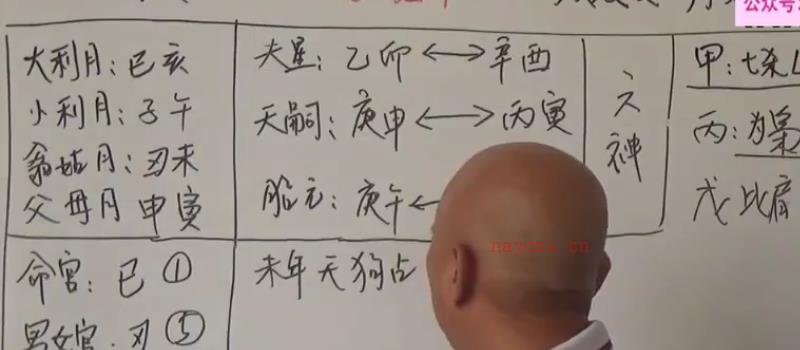 公众号
大利月：巳亥
小利月：子午
翁姑月：丑未
父母月 申寅
夫星：乙卯 ←→ 辛酉
天嗣：庚申 ←→ 丙寅
胎元：庚午 ←
六神
甲：七杀
丙：为枭
戊 比肩
命宫：巳 ①
男女宫：丑 ⑤
未年 天狗占
nayona.cn